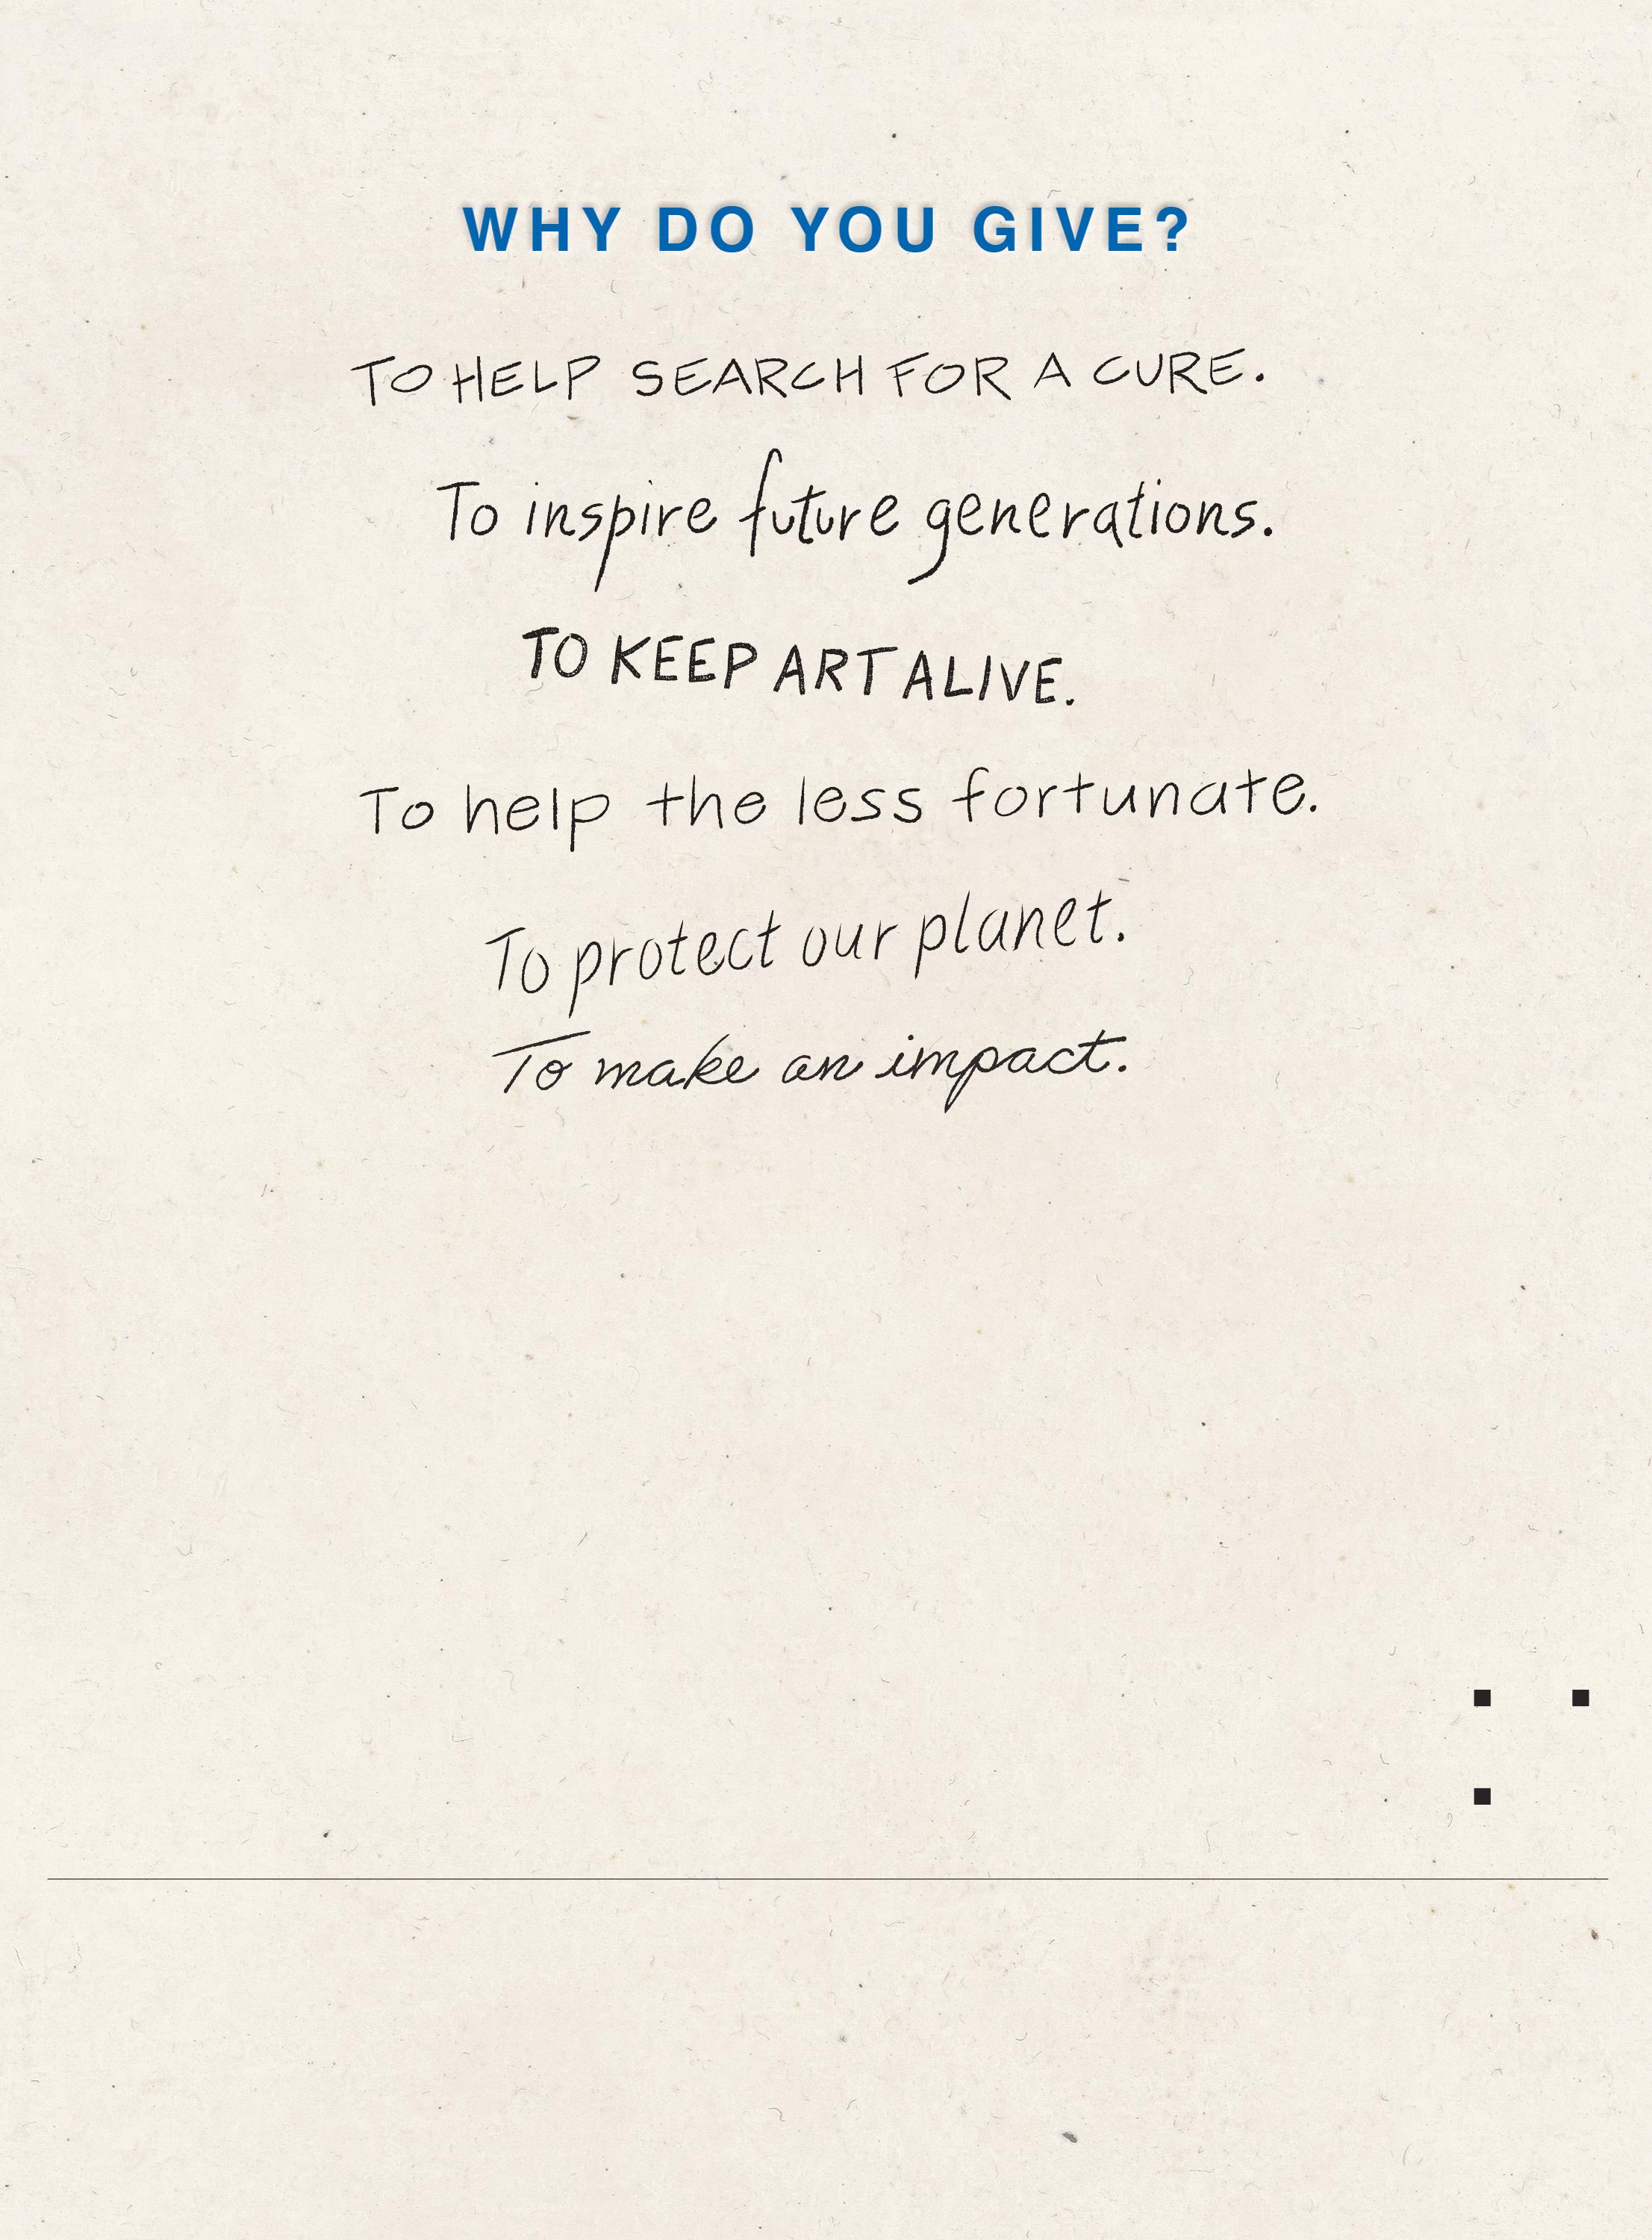 WHY DO YOU GIVE?
TO HELP SEARCH FOR A CURE.
To inspire future generations.
TO KEEP ART ALIVE.
To help the less fortunate.
To protect our planet.
To make an impact.